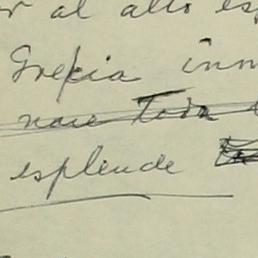 al alto es
Grecia inn
nace Toda
esplende